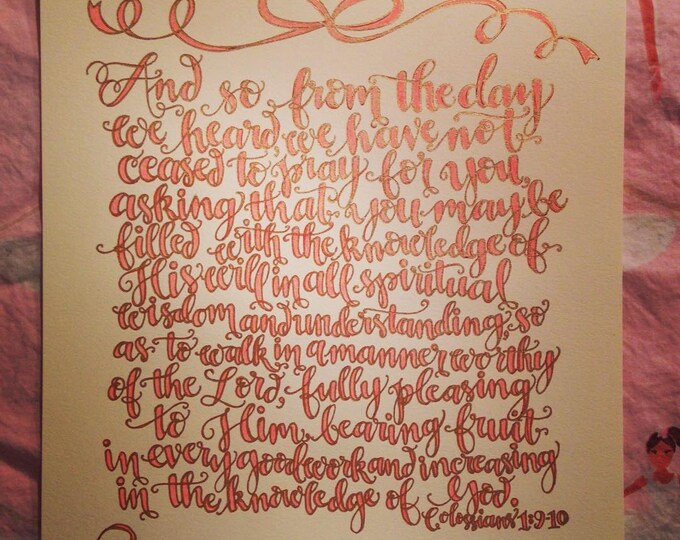 And so, from the day
we heard, we have not
ceased to pray for you,
asking that you may be
filled with the knowledge of
His will in all spiritual
wisdom and understanding, so
as to walk in a manner worthy
of the Lord, fully pleasing
to Him, bearing fruit
in every good work and increasing
in the knowledge of God.
Colossians 1:9-10